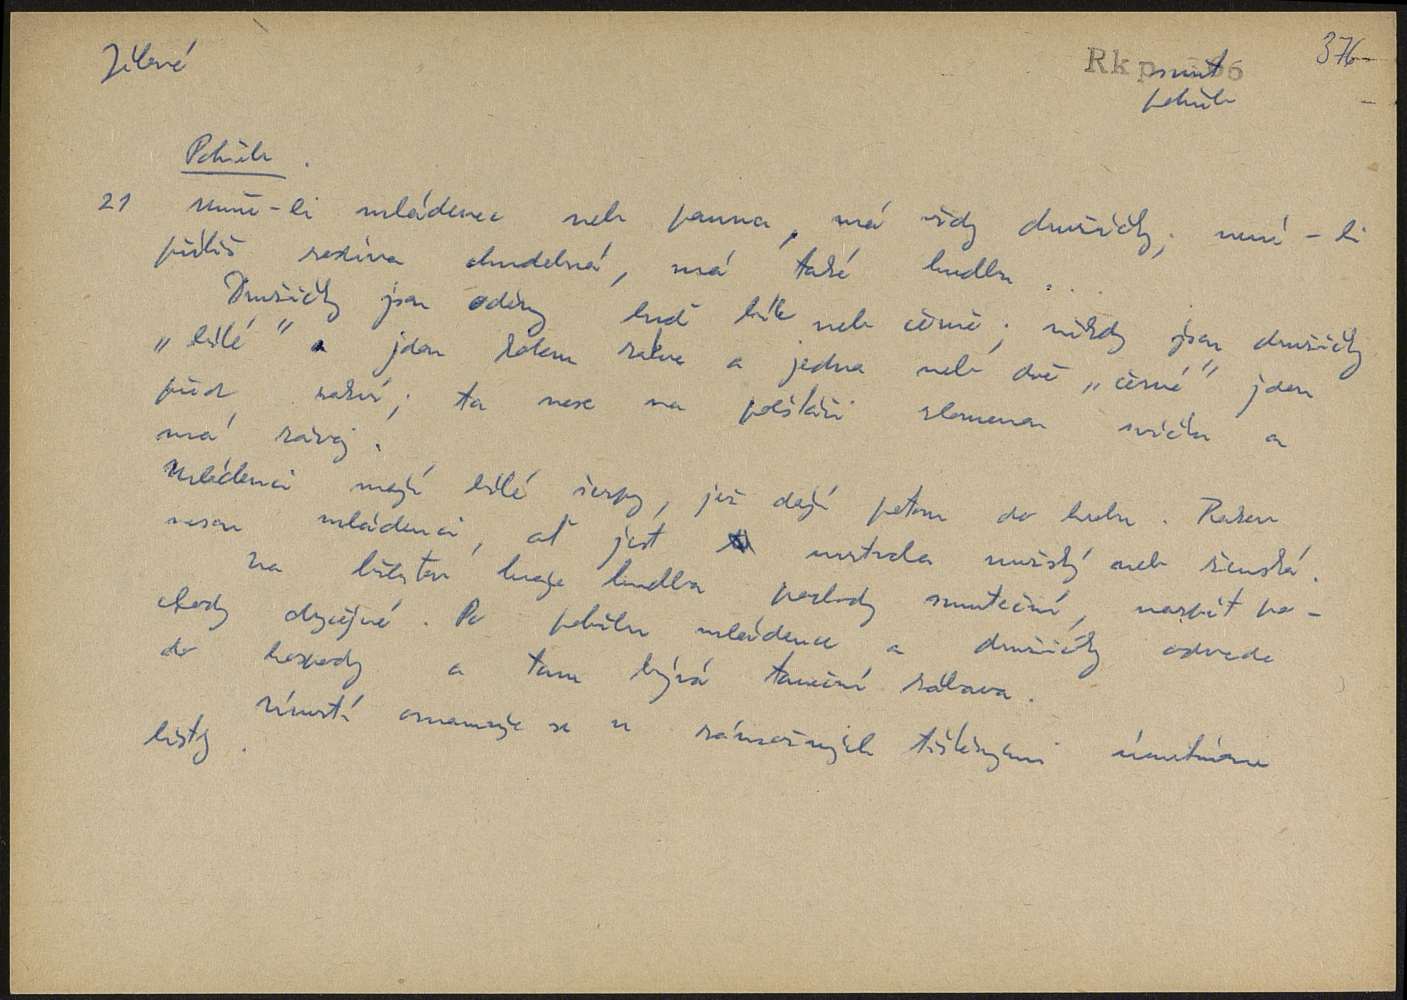 Jílové
376
Rkp. 366
smrt
pohřb
Pohřeb.
21 Umře-li mládenec neb panna, má vždy družičky; není-li
příliš rodina chudobná, má také hudbu...
Družičky jsou oděny buď bíle neb černě; někdy jsou družičky
„bílé" jdou kolem rakve a jedna neb dvě „černé" jdou
před rakví; ta nese na polštáři zlomenou svíčku a
má závoj.
Mládenci mají bílé šerpy, jež dají potom do hrobu. Rakev
nesou mládenci, ať jest mrtvola mužská neb ženská.
Na hřbitov hraje hudba pochody smuteční, nazpět po-
chody obyčejné. Po pohřbu mládence a družičky odvede
do hospody a tam bývá taneční zábava.
Úmrtí oznamuje se u zámožných tištěnými úmrtními
listy.